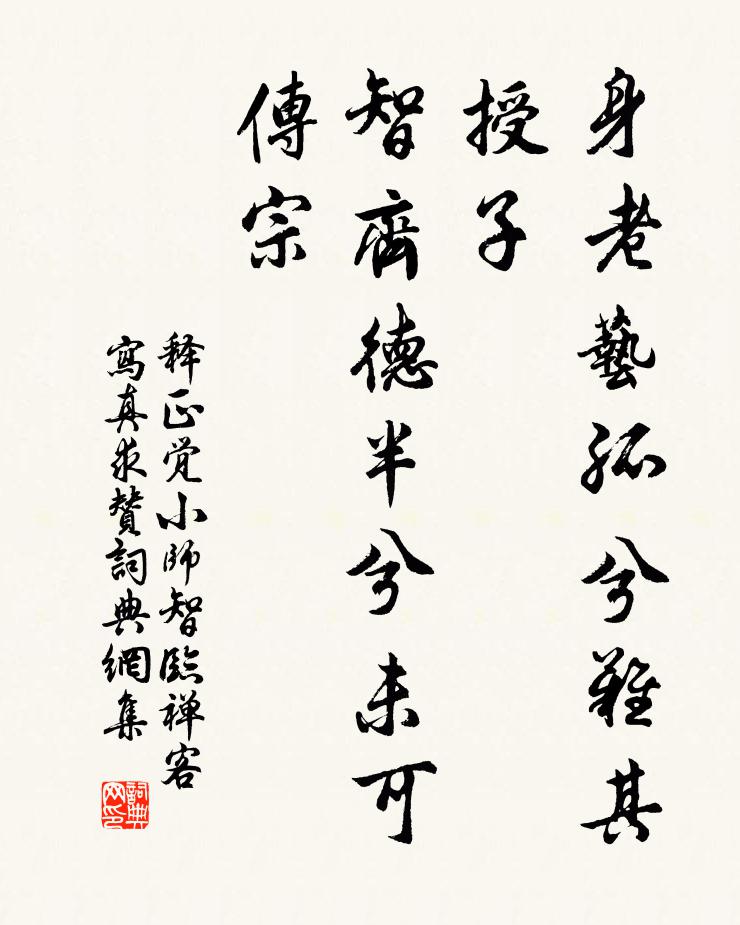 身老藝孤兮難其
授子
智齊德半兮未可
傳宗
释正觉小師智臨禅客
寫真求贊詞典網集
詞典网印